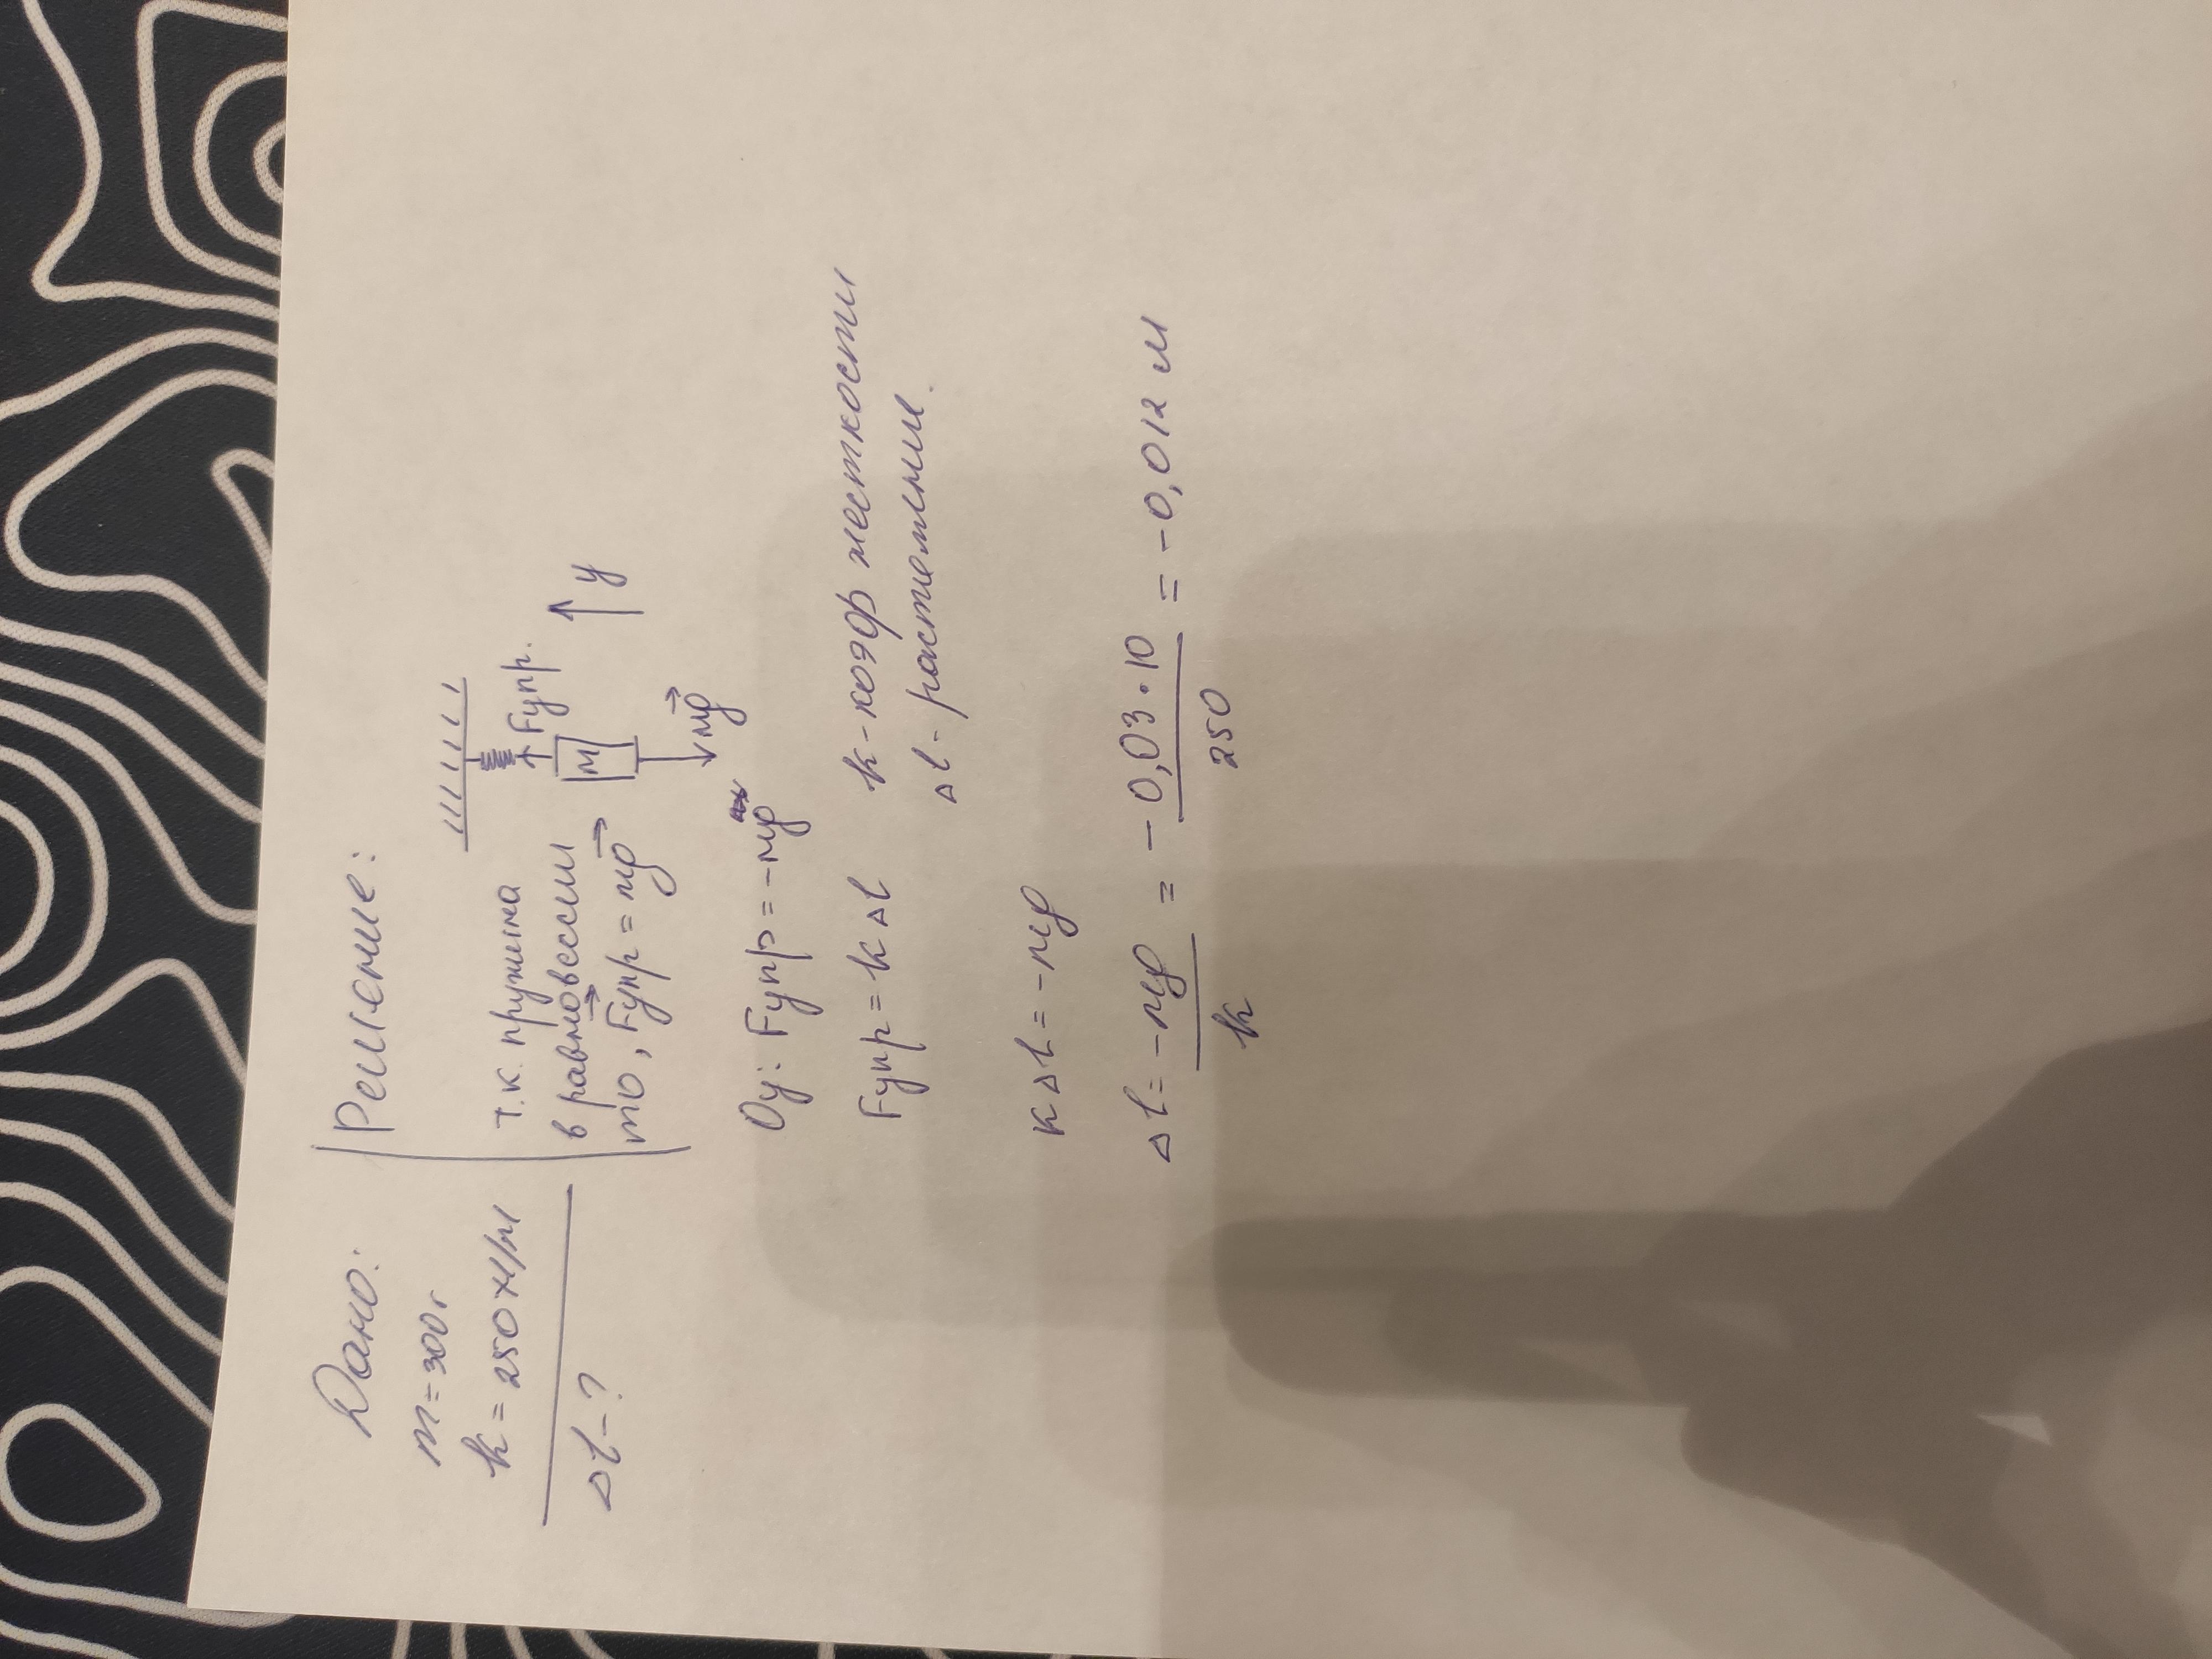 Дано:
m = 300г
k = 250 Н/м
Δl - ?
Решение:
т.к. пружина
в равновесии
то, Fупр = mg
Fупр.
M
mg
y
Oy: Fупр = -mg
Fупр = kΔl
k - коэф жесткости
Δl - растяжение.
kΔl = -mg
Δl = -mg/k = -0,03·10/250 = -0,012 м